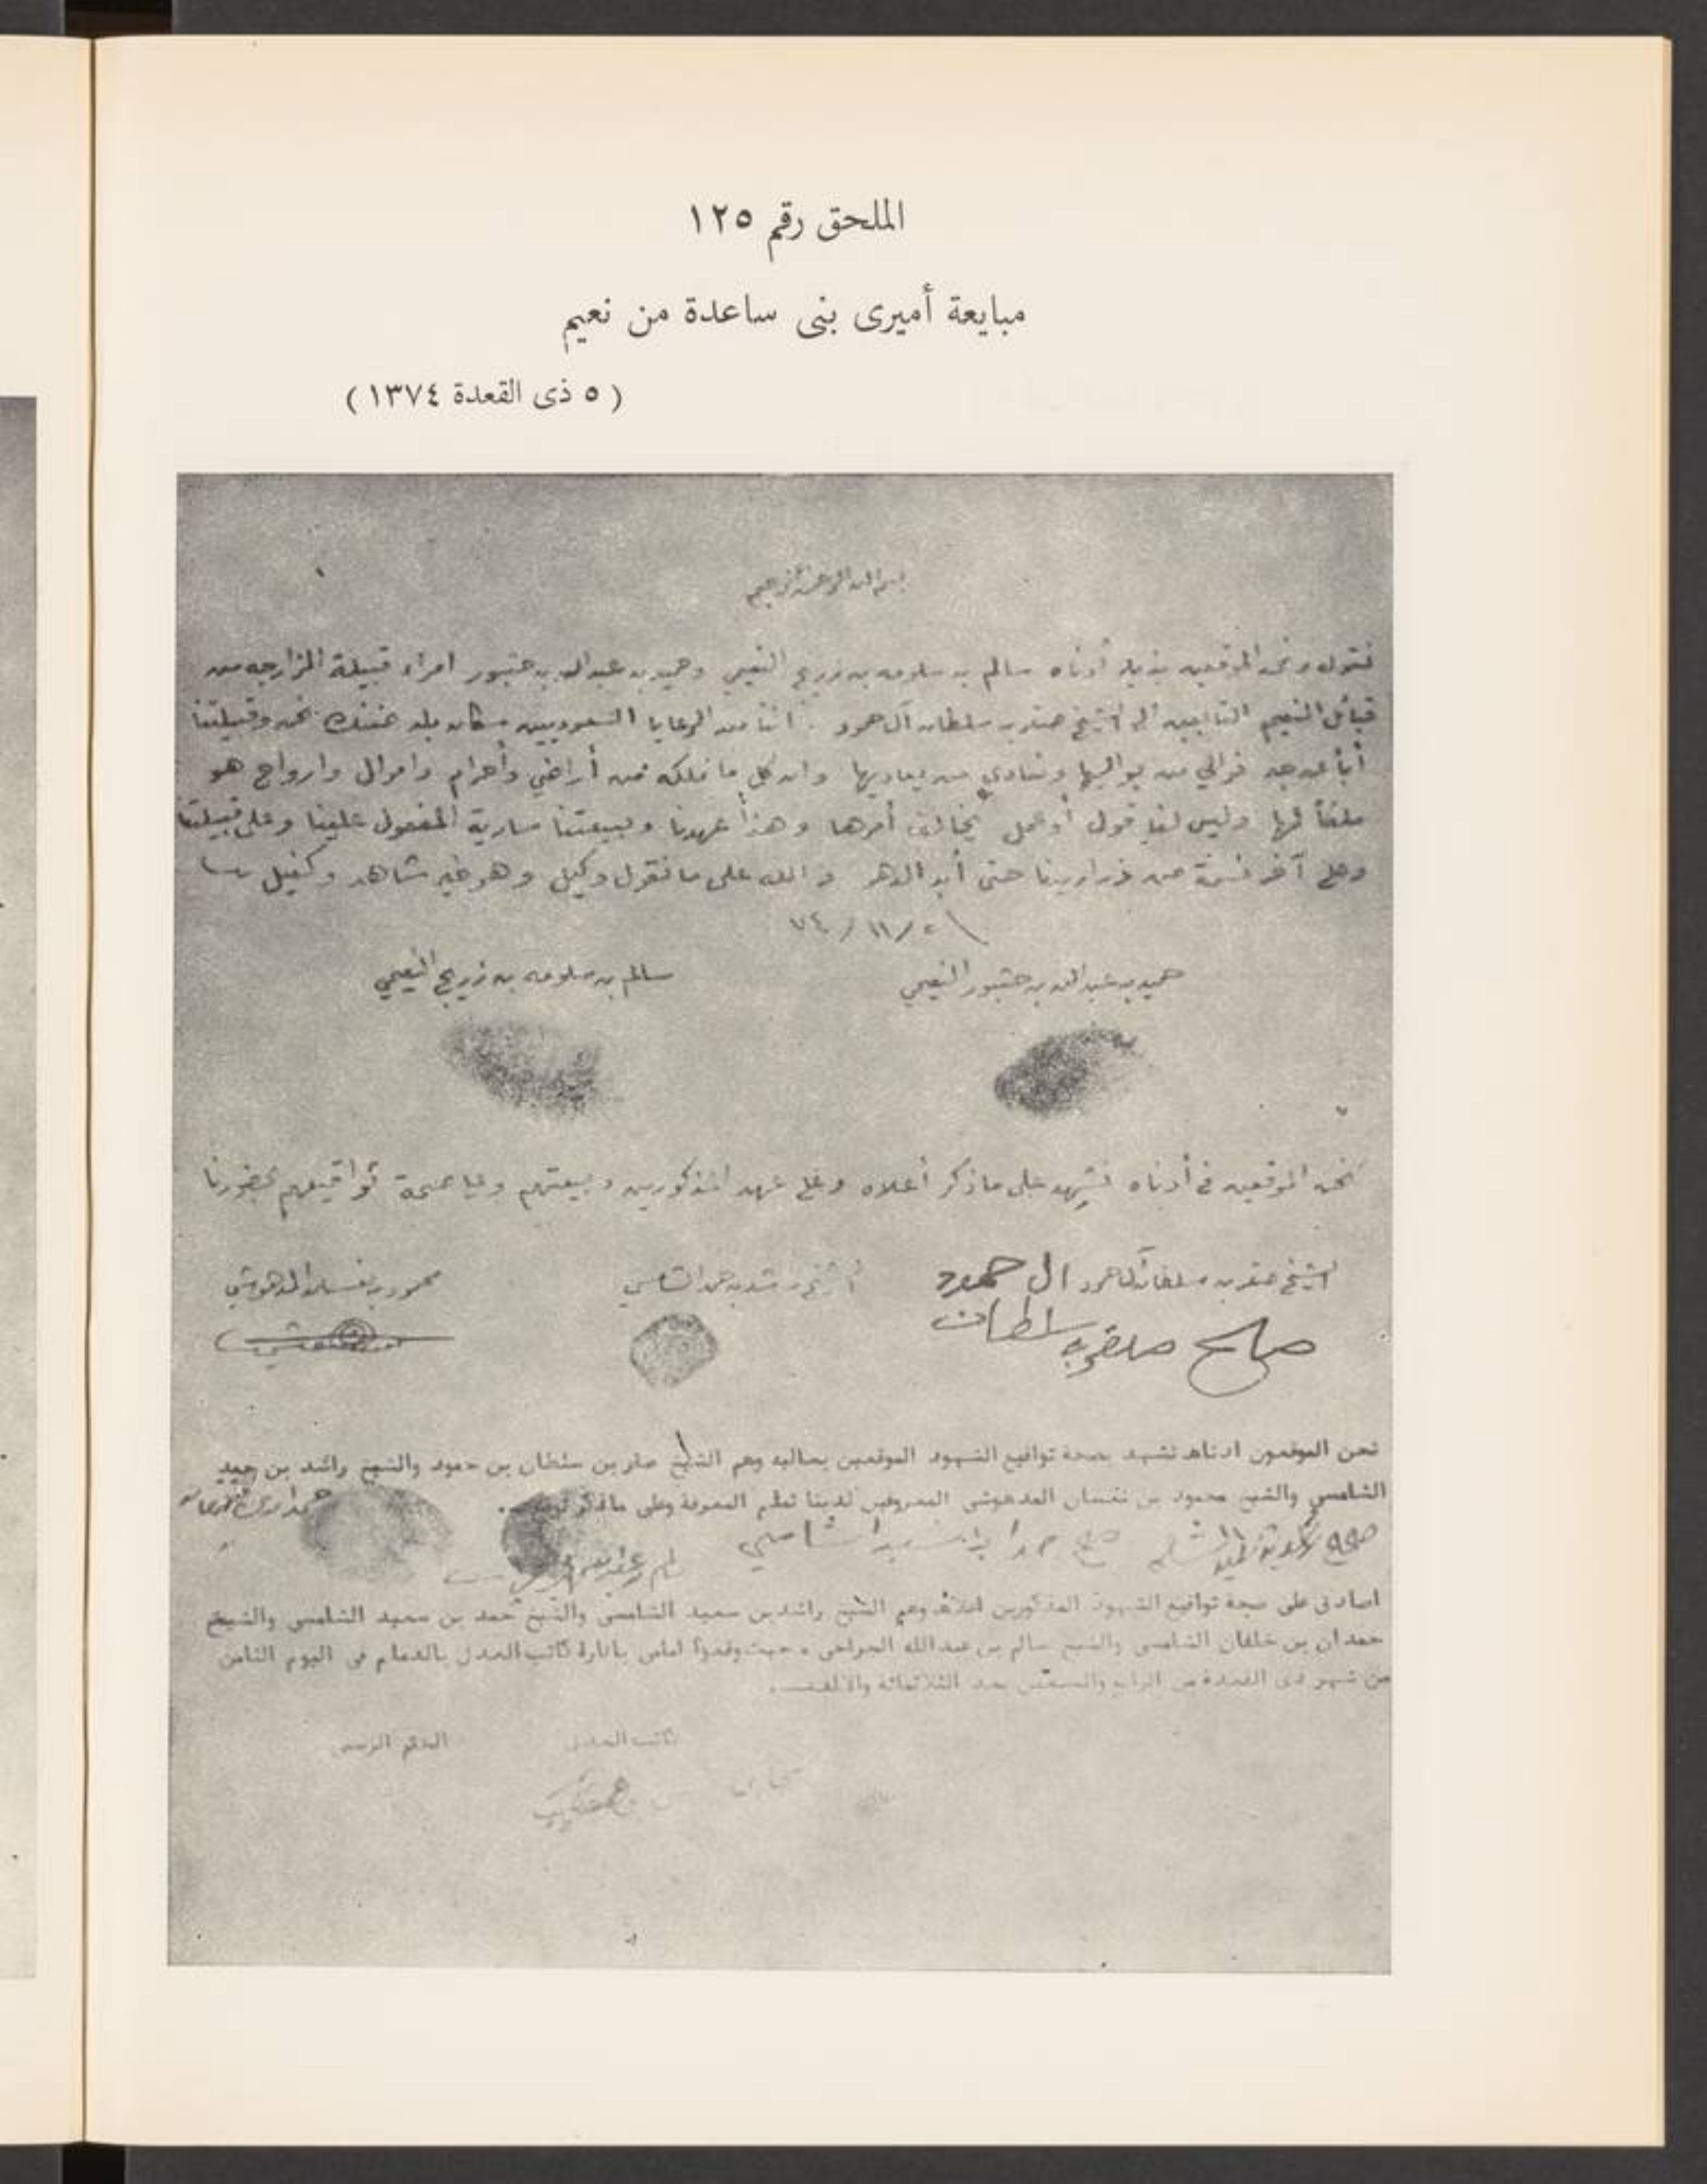 الملحق رقم ١٢٥
مبايعة أميرى بنى ساعدة من نعيم
( ٥ ذى القعدة ١٣٧٤ )
بسم الله الرحمن الرحيم
نقول ونحن الموقعين بذيله أدناه سالم بن سلومه بن زريع النعيمي وحميد بن عبدالله بن امراء قبيلة من
قبائل النعيم التابعين الى الشيخ صقر بن سلطان آل حمود . اننا من الرعايا السعوديين سكان بلد ضنك نحن وقبيلتنا
أباً عن جد نوالي من يواليها ونعادي من يعاديها وان كل ما نملكه من أراضي وأحرام واموال وارواح هو
ملكاً لها وليس لنا قول أو عمل يخالف أمرها وهذا عهدنا وبيعتنا سارية المفعول علينا وعلى قبيلتنا
وعلى آخر نسمة من ذرارينا حتى أبد الدهر والله على ما نقول وكيل وهو خير شاهد وكفيل
٧٤ / ١١ / ٥
حميد بن عبدالله بن النعيمي سالم بن سلومه بن زريع النعيمي
نحن الموقعين في أدناه نشهد على ما ذكر أعلاه وعلى عهد المذكورين وبيعتهم وعلى صحة تواقيعهم بحضورنا
الشيخ صقر بن سلطان آل حمود ال حمود الشيخ راشد بن حمد الشامسي محمود بن نفسان المدهوشي
صحيح صقر بن سلطان
نحن الموقعون ادناه نشهد بصحة تواقيع الشهود الموقعين بعاليه وهم الشيخ صقر بن سلطان بن حمود والشيخ راشد بن
الشامسي والشيخ محمود بن نفسان المدهوشى المعروفين لدينا تمام المعرفة وعلى ماذكر
صحيح حمد الشامسي
اصادق على صحة تواقيع الشهود المذكورين اعلاه وهم الشيخ راشد بن سعيد الشامسى والشيخ حمد بن سعيد الشامسى والشيخ
حمدان بن خلفان الشامسى والشيخ سالم بن عبدالله حيث وفدوا امامى بادارة كاتب العدل بالدمام فى اليوم الثامن
من شهر ذى القعدة من الرابع والسبعين بعد الثلاثمائة والالف
كاتب العدل الختم الرسمى